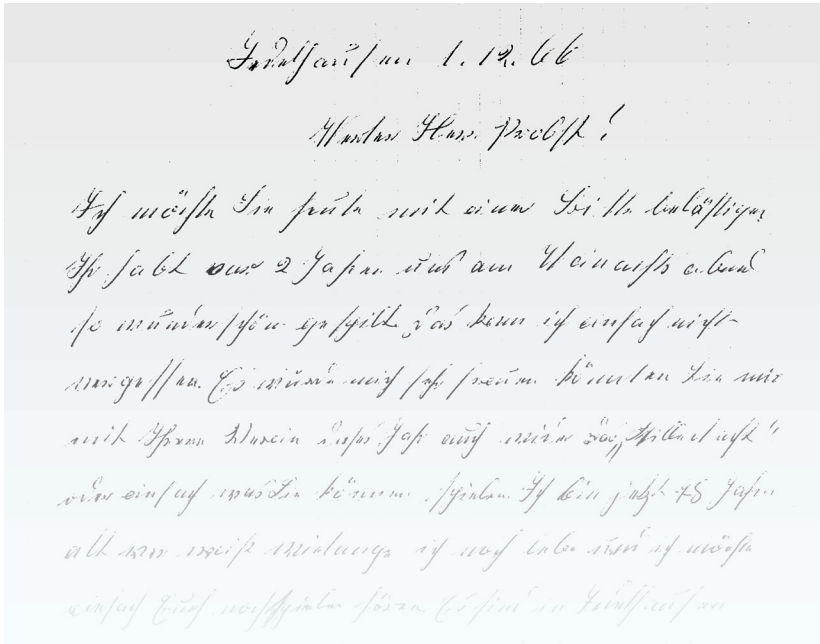 Indelhausen 1.12.66
Werter Herr Probst!
Ich möchte Sie heute mit einer Bitte belästigen
Ihr habt vor 2 Jahren uns am Weinachtsabend
so wunderschön gespilt das kann ich einfach nicht
vergessen. Es würde mich sehr freuen könnten Sie mir
mit Ihrem Verein dieses Jahr auch wider das „Stille Nacht"
oder einfach was Sie können spielen. Ich bin jetzt 78 Jahre
alt wer weiß wielange ich noch lebe und ich möchte
einfach Euch noch spielen hören Es sind in Indelhausen